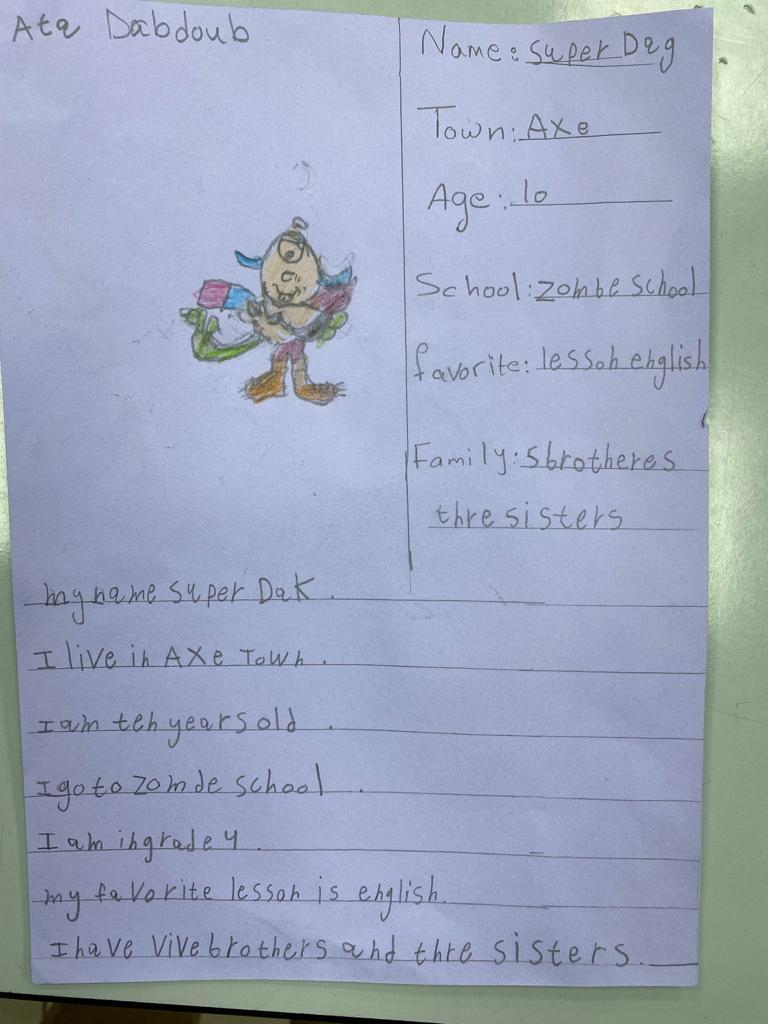 Ata Dabdoub
Name: Super Dag
Town: Axe
Age: 10
School: zombe school
favorite: lesson english
Family: 5 brotheres
thre sisters
my name super Dak.
I live in AXe Town.
I am ten years old.
I go to zomde school.
I am in grade 4.
my favorite lesson is english.
I have vive brothers and thre sisters.